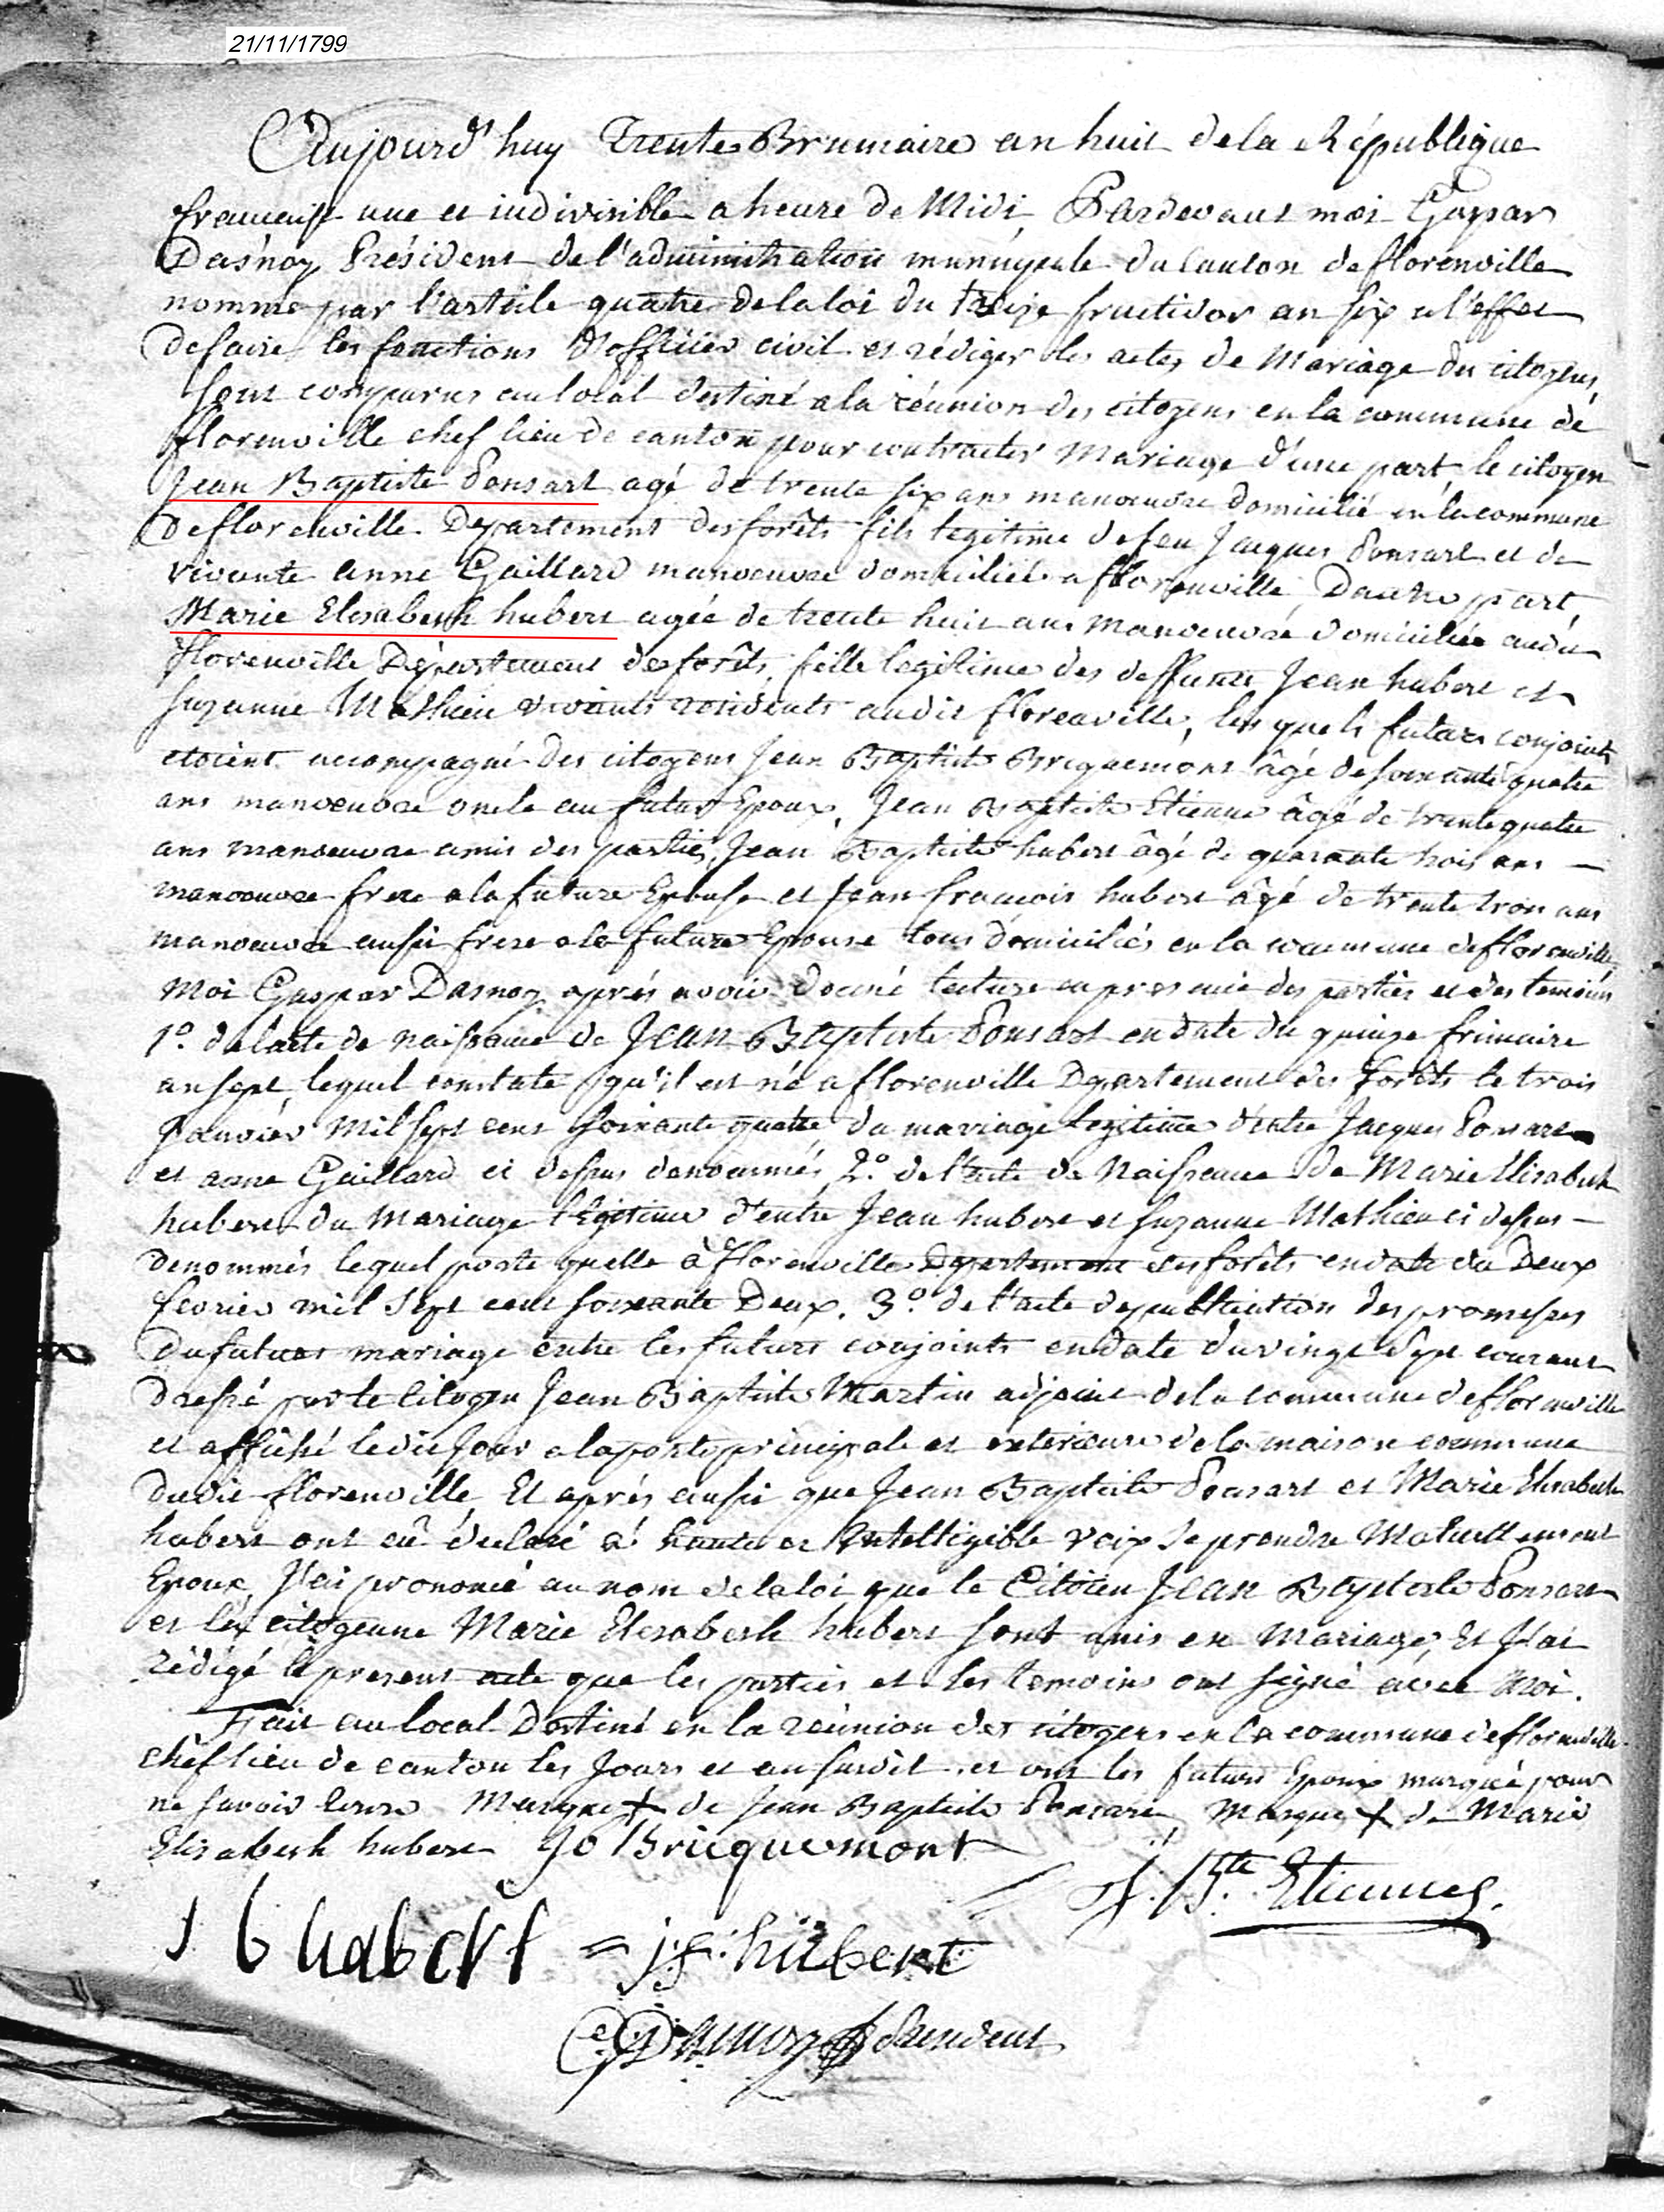 21/11/1799
Aujourd'huy Trente Brumaire an huit de la République
francaise une et indivisible a heure de Midi, Pardevant moi Gaspar
Dasnoy Président de l'administration municipale du Canton de florenville
nommé par l'article quatre de la loi du treize fructidor an six a l'effet
de faire les fonctions d'officier civil et rédiger les actes de Mariage des citoyens,
sont comparus au local destiné a la réunion des citoyens en la commune de
florenville chef lieu de canton pour contracter Mariage d'une part, le citoyen
Jean Baptiste Ponsart agé de trente six ans manoeuvre domicilié en la commune
de florenville Departement des forêts fils legitime de feu Jacques Ponsart et de
vivante anne Gaillard manoeuvre domiciliée a florenville, Dautre part,
Marie Elisabeth hubert agée de trente huit ans manoeuvre domiciliée audit
florenville Département des forêts, fille legitime des deffunts Jean hubert et
Suzanne Mathieu vivants residents audit florenville, les quels futurs conjoints
etoient accompagné des citoyens Jean Baptiste Bricquemont âgé de soixante quatre
ans manoeuvre oncle au futur Epoux, Jean Baptiste Etienne âgé de trente quatre
ans manoeuvre amis des parties, Jean Baptiste hubert âgé de quarante trois ans —
manoeuvre frere a la future Epouse et Jean francois hubert âgé de trente trois ans
manoeuvre aussi frere a la future Epouse tous domiciliés en la commune de florenville
Moi Gaspar Dasnoy après avoir donné lecture en presence des parties et des temoins
1.° de lacte de naissance de Jean Baptiste Ponsart en date du quinze frimaire
an sept, lequel constate qu'il est né a florenville Departement des forêts le trois
Janvier Mil sept cent soixante quatre du mariage legitime d'entre Jacques Ponsart
et anne Gaillard ci dessus denommés, 2.° de l'acte de Naissance de Marie Elisabeth
hubert du Mariage légitime d'entre Jean hubert et Suzanne Mathieu ci dessus —
denommés lequel porte quelle à florenville Departement des forêts en date du Deux
fevrier mil sept cent soixante Deux. 3.° de l'acte de publication des promesses
du futur mariage entre les futurs conjoints en date du vingt sept courant
dressé par le citoyen Jean Baptiste Martin adjoint de la commune de florenville
et affiché ledit Jour a la porte principale et exterieure de la maison commune
dudit florenville Et après aussi que Jean Baptiste Ponsart et Marie Elisabeth
hubert ont eû déclaré à haute et Intelligible voix se prendre Mutuellement
Epoux, J'ai prononcé au nom de la loi que le Citoien Jean Baptiste Ponsart
et la citoyenne Marie Elisabeth hubert sont unis en Mariage, Et J'ai
rédigé le present acte que les parties et les temoins ont signé avec Moi.
Fait au local Destiné en la reunion des citoyens en la commune de florenville
chef lieu de canton les Jours et an susdit et ont les futurs Epoux marqué pour
ne savoir ecrire Marque + de Jean Baptiste Ponsart, Marque + de Marie
Elisabeth hubert Jo Bricquemont
J. B.te Etienne
J b hubert = j f hubert
G Dasnoy President